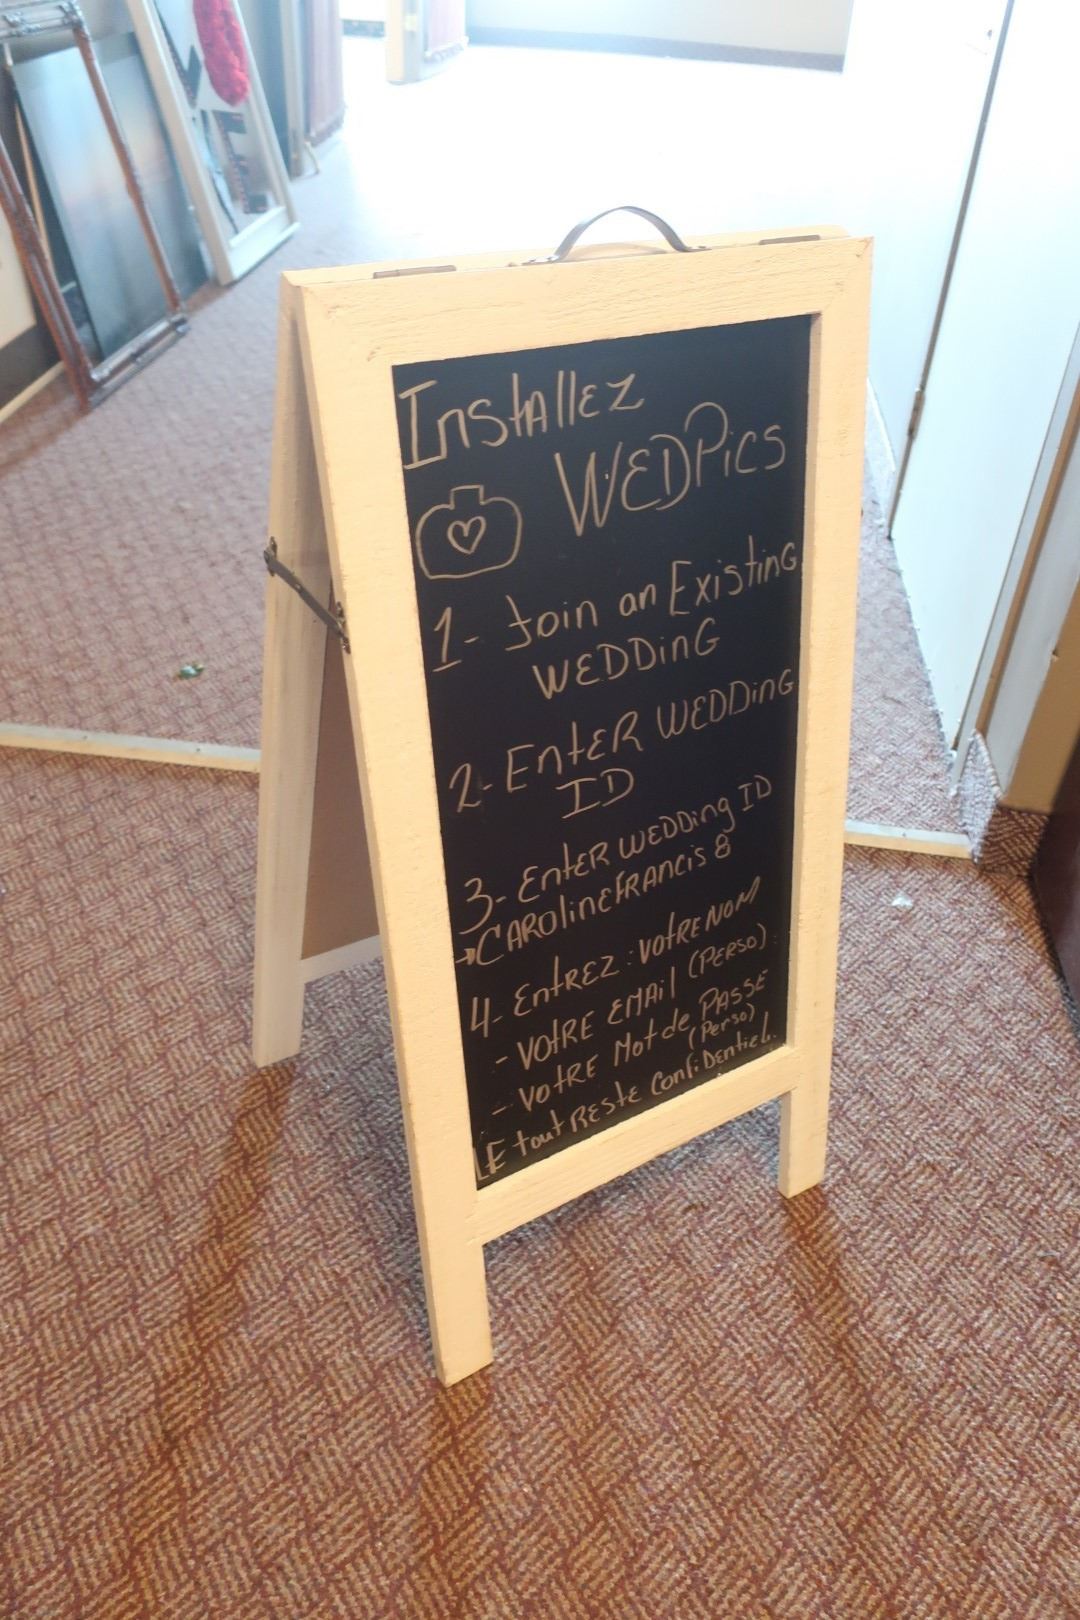 Installez
WEDPics
1- Join an Existing
WEDDinG
2- EntER WEDDinG
ID
3- EntER WEDDing ID
→ CARolinEFRAncis 8
4- EntREZ : VotRE NOM
- VotRE EMAil (PERSO)
- VotRE Mot de PASSE
(Perso)
LE tout REStE ConfiDentiel.